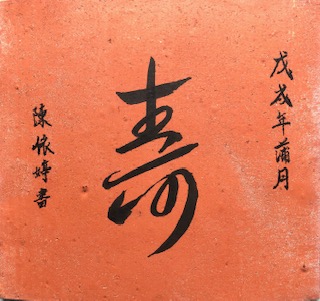 戊戌年蒲月
壽
陳依婷書